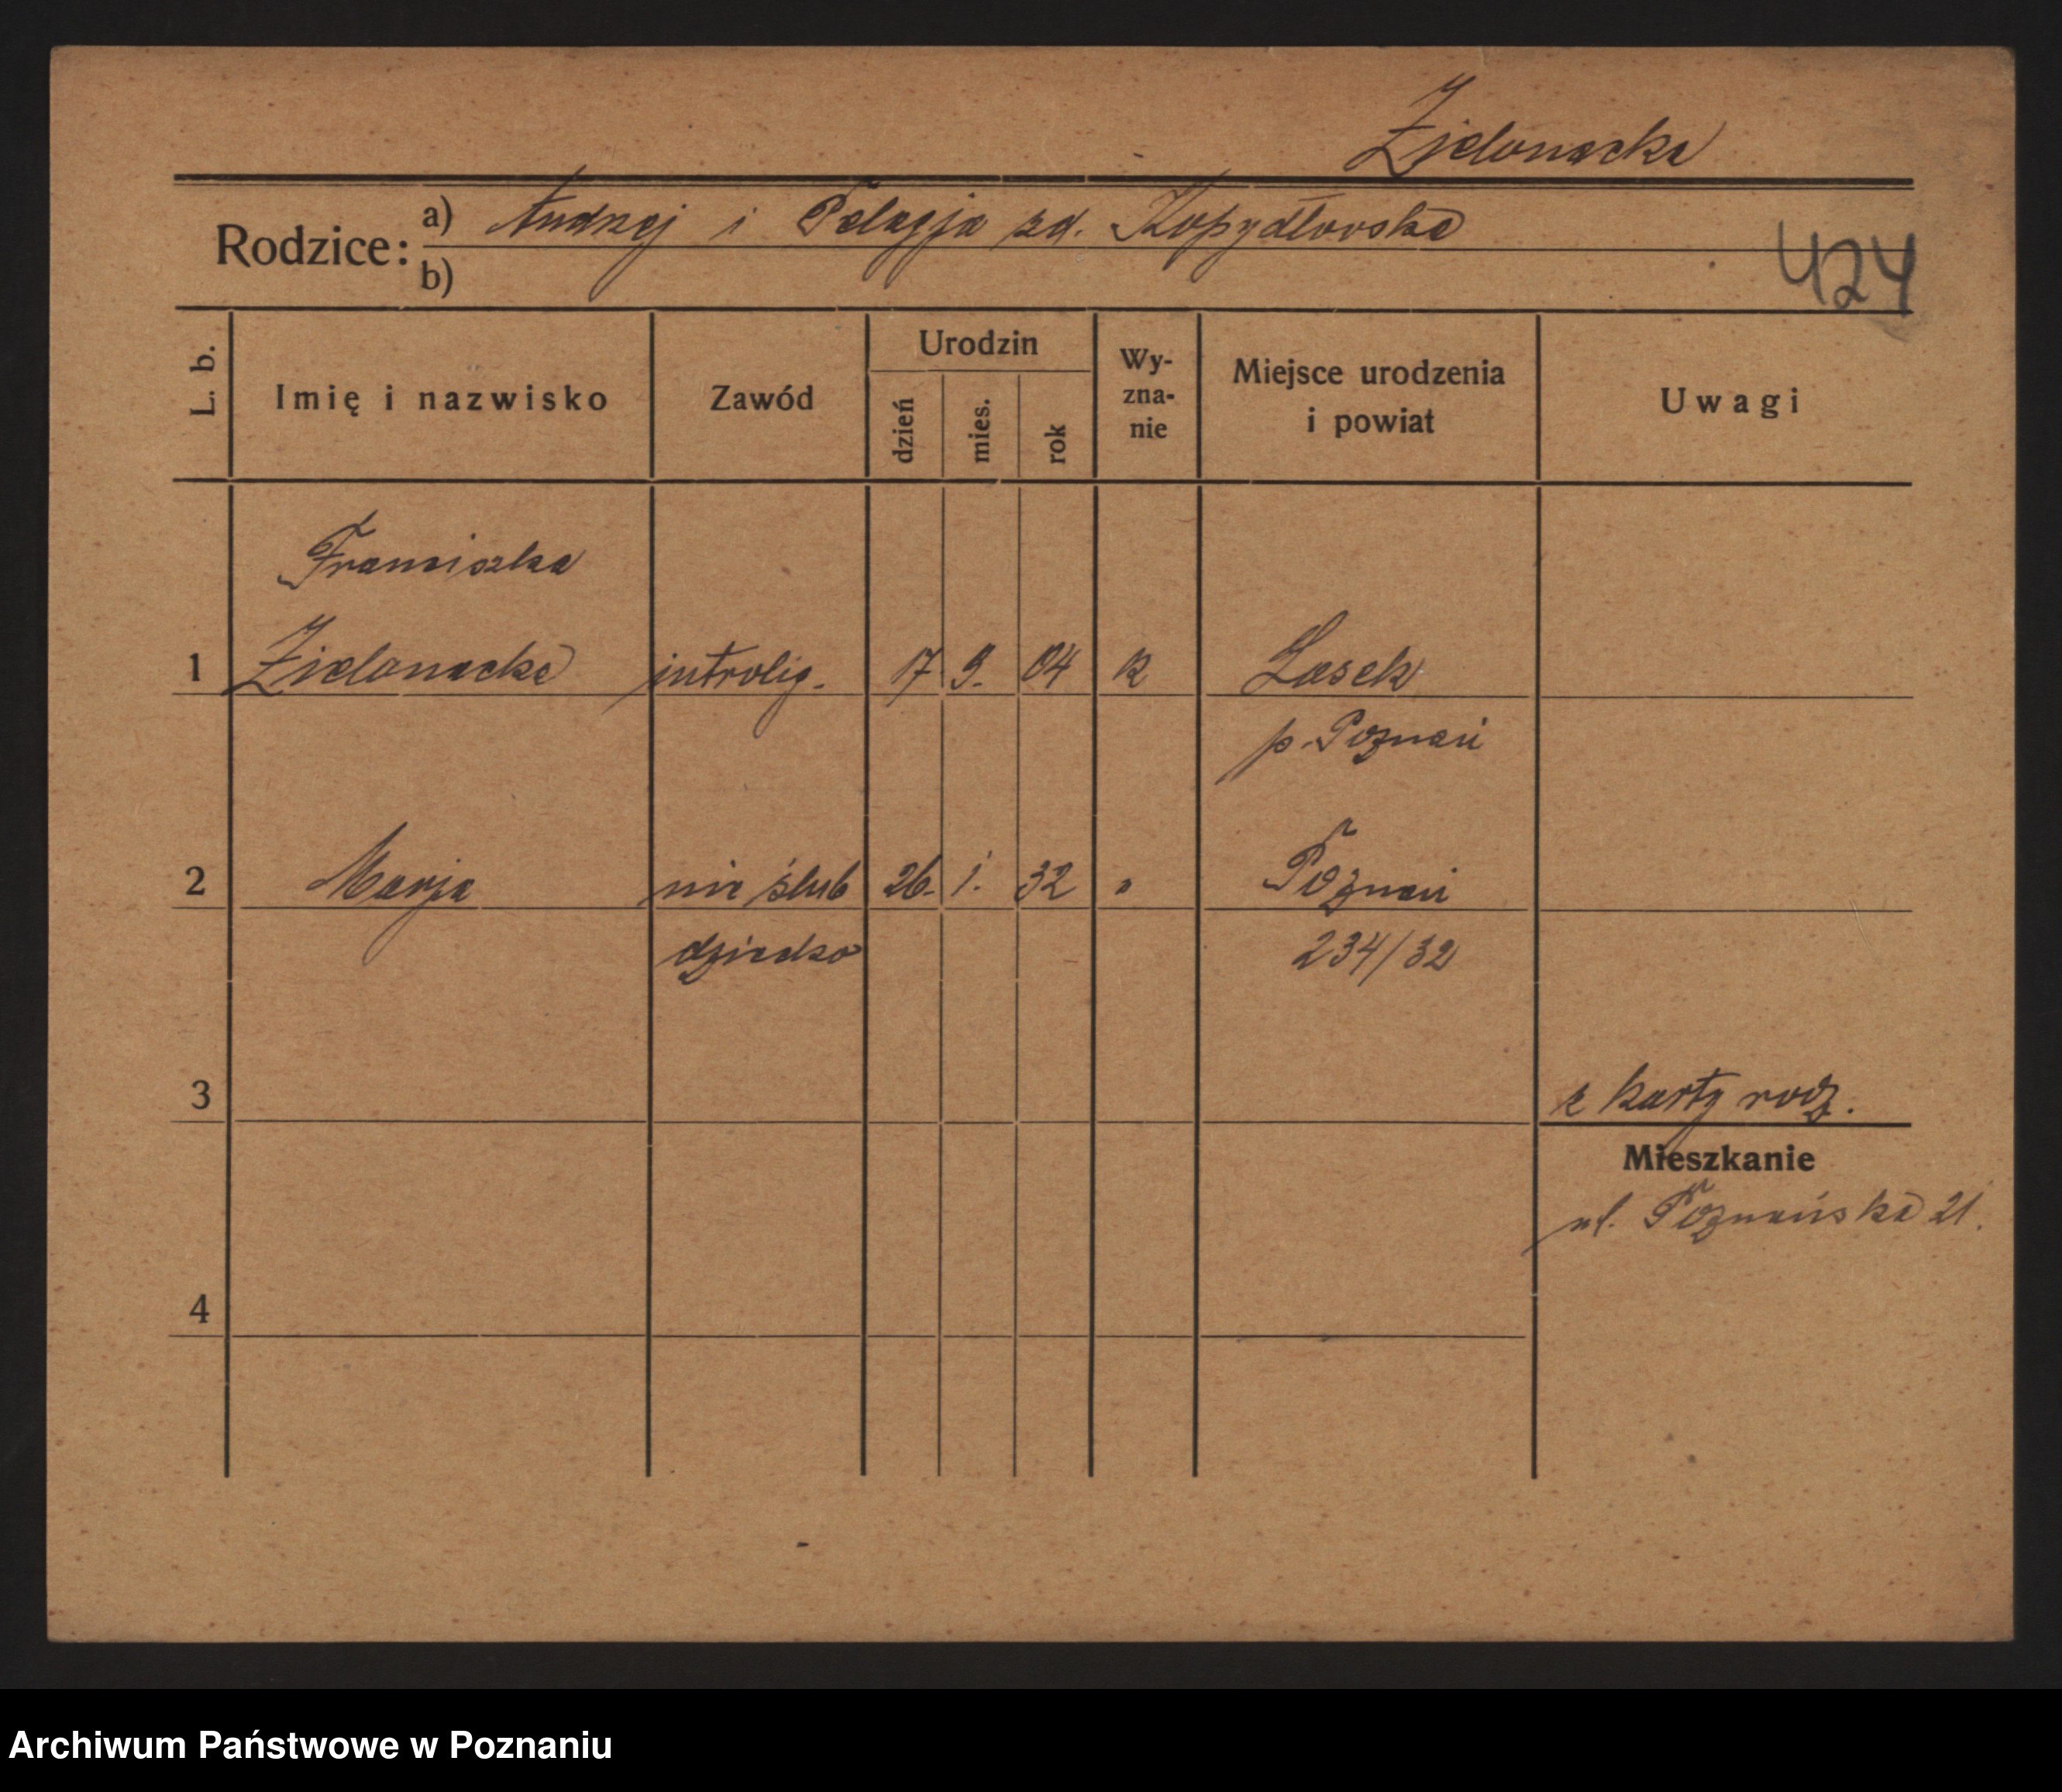 Zielonacka
Rodzice: a) Andrzej i Pelagja zd. Kopydłowska
b)
424
L. b. Imię i nazwisko Zawód Urodzin dzień mies. rok Wy-zna-nie Miejsce urodzenia i powiat Uwagi
Franciszka
1 Zielonacka introlig. 17 9. 04 k Lasek
p. Poznań
2 Marja nie ślub 26. 1. 32 " Poznań
dziecko 234/32
3 z karty rodz.
Mieszkanie
ul. Poznańska 21.
4
Archiwum Państwowe w Poznaniu